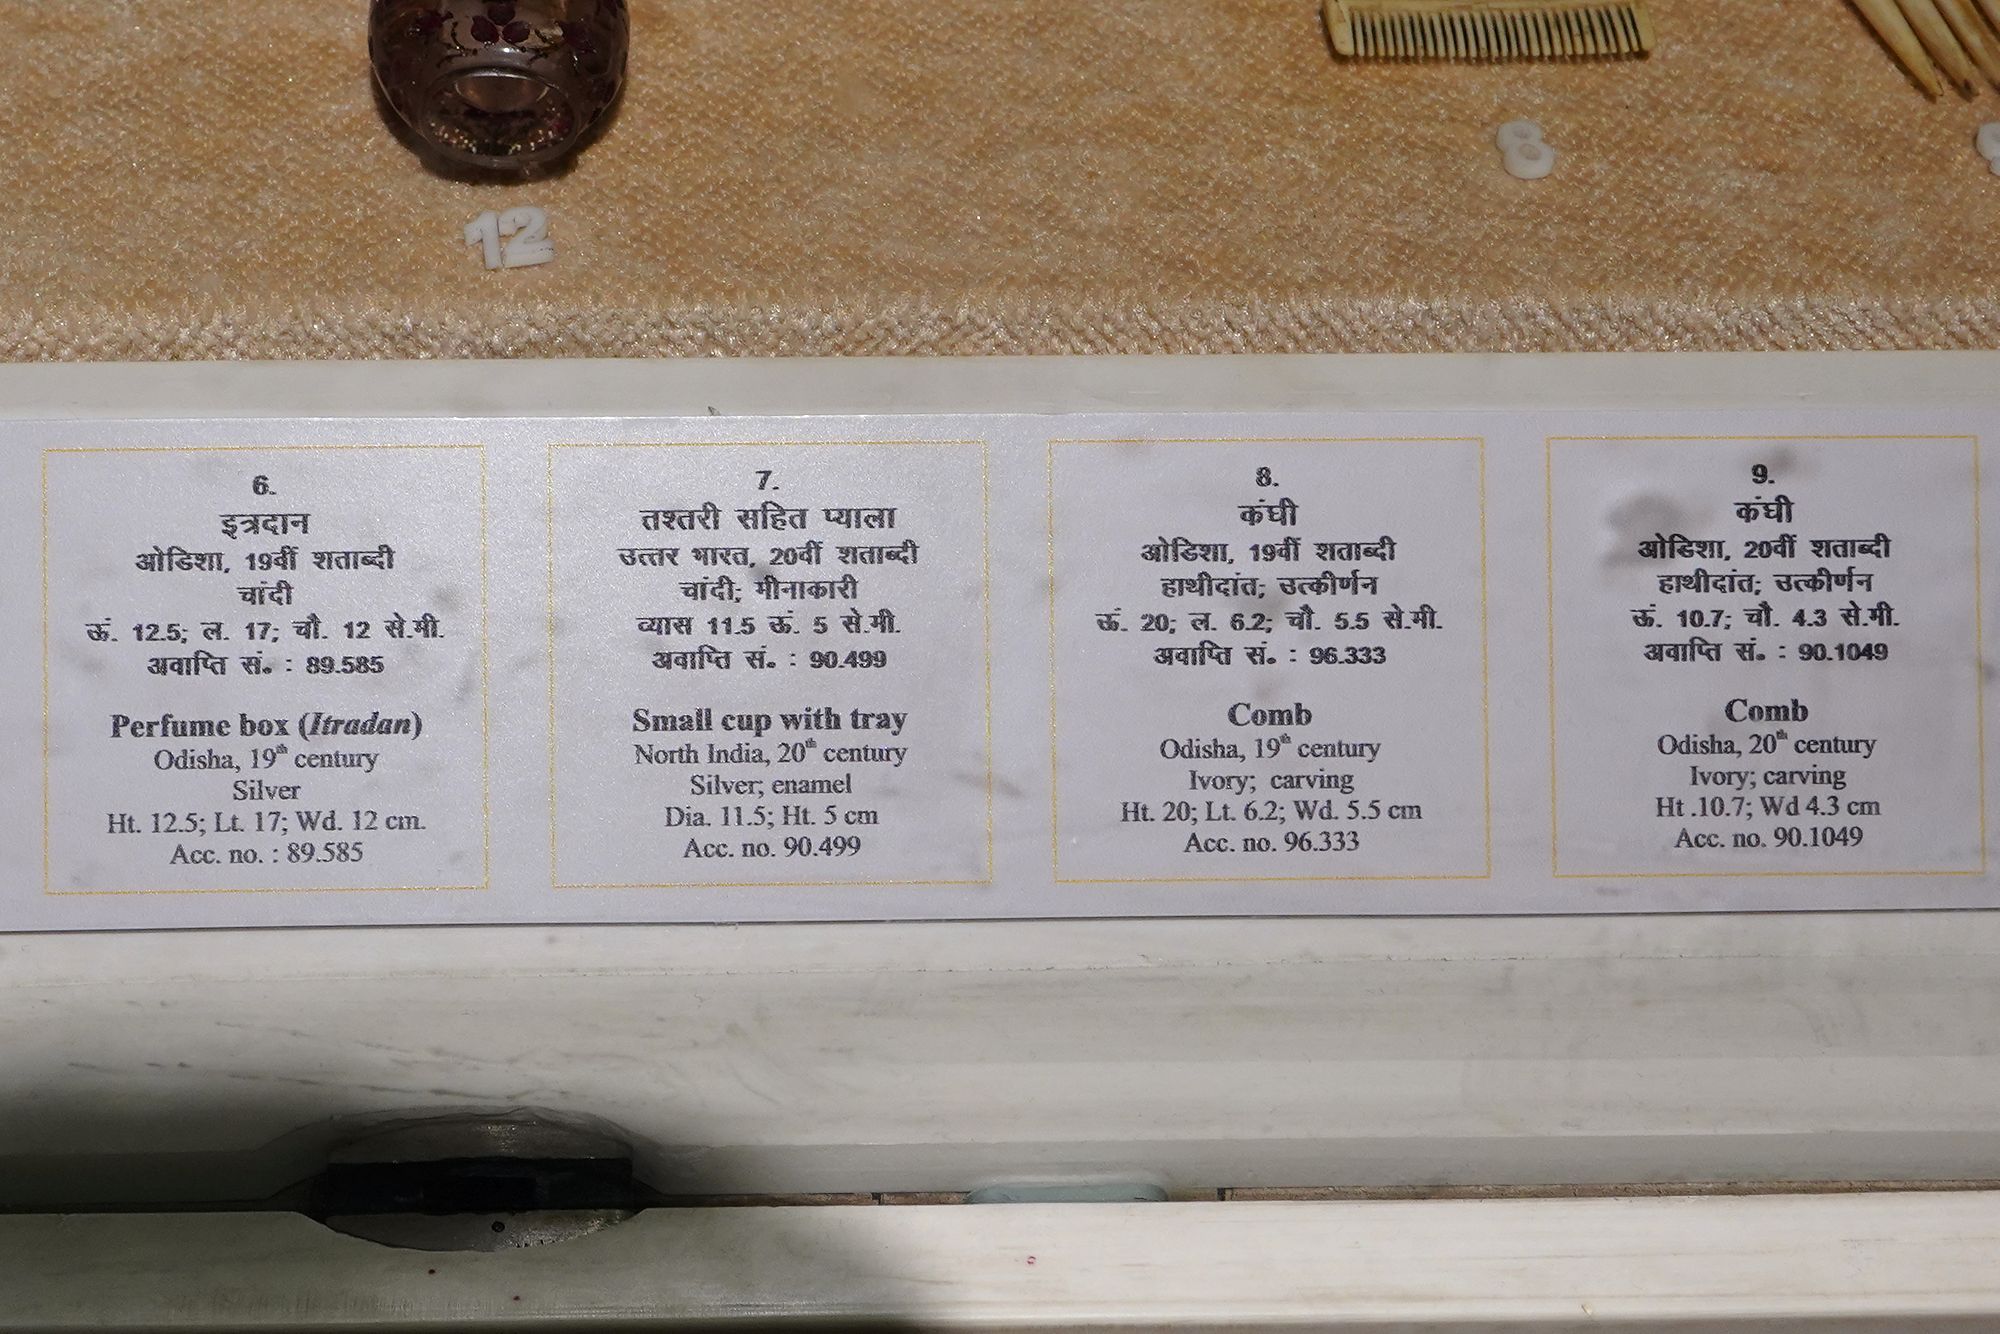 12
8
6.
इत्रदान
ओडिशा, 19वीं शताब्दी
चांदी
ऊं. 12.5; ल. 17; चौ. 12 से.मी.
अवाप्ति सं. : 89.585
Perfume box (Itradan)
Odisha, 19th century
Silver
Ht. 12.5; Lt. 17; Wd. 12 cm.
Acc. no. : 89.585
7.
तश्तरी सहित प्याला
उत्तर भारत, 20वीं शताब्दी
चांदी; मीनाकारी
व्यास 11.5 ऊं. 5 से.मी.
अवाप्ति सं. : 90.499
Small cup with tray
North India, 20th century
Silver; enamel
Dia. 11.5; Ht. 5 cm
Acc. no. 90.499
8.
कंघी
ओडिशा, 19वीं शताब्दी
हाथीदांत; उत्कीर्णन
ऊं. 20; ल. 6.2; चौ. 5.5 से.मी.
अवाप्ति सं. : 96.333
Comb
Odisha, 19th century
Ivory; carving
Ht. 20; Lt. 6.2; Wd. 5.5 cm
Acc. no. 96.333
9.
कंघी
ओडिशा, 20वीं शताब्दी
हाथीदांत; उत्कीर्णन
ऊं. 10.7; चौ. 4.3 से.मी.
अवाप्ति सं. : 90.1049
Comb
Odisha, 20th century
Ivory; carving
Ht .10.7; Wd 4.3 cm
Acc. no. 90.1049